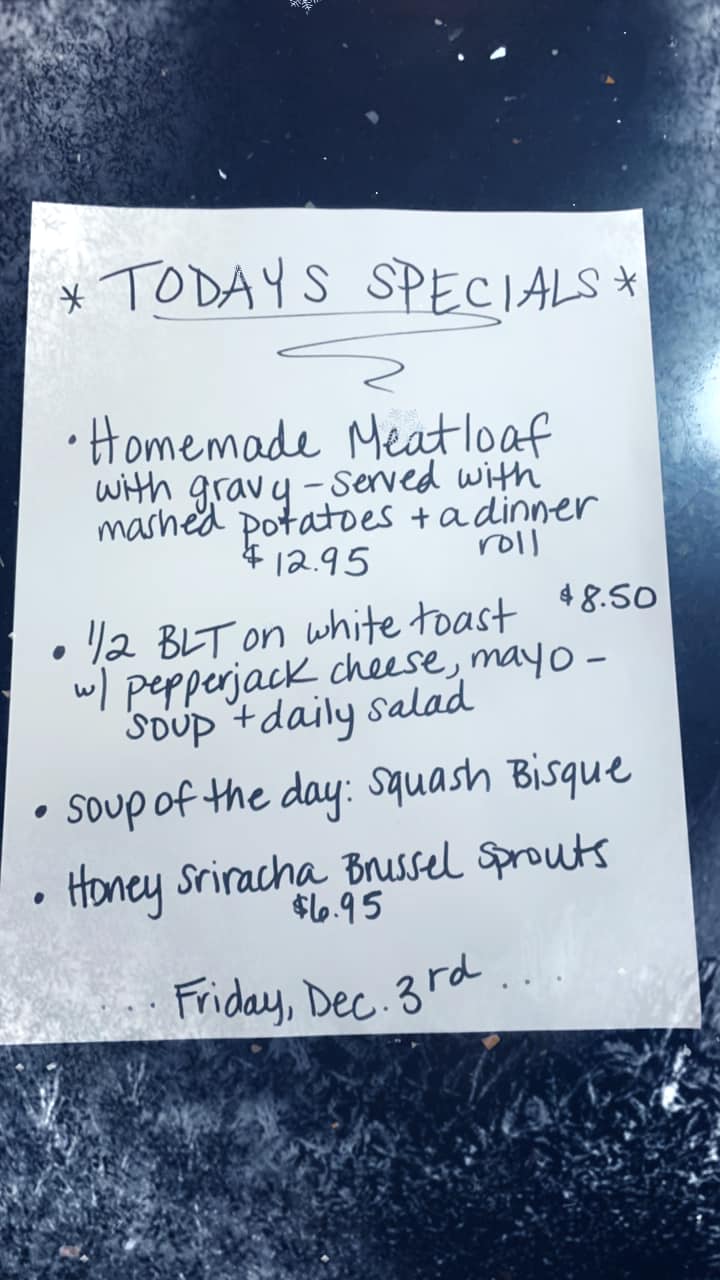 * TODAYS SPECIALS *
• Homemade Meatloaf
with gravy - served with
mashed potatoes + a dinner
roll
$12.95
• 1/2 BLT on white toast $8.50
w/ pepperjack cheese, mayo -
soup + daily salad
• soup of the day: Squash Bisque
• Honey Sriracha Brussel Sprouts
$6.95
... Friday, Dec. 3rd ...